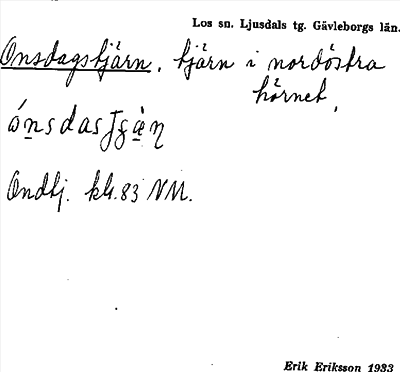 Los sn. Ljusdals tg. Gävleborgs län.
Onsdagstjärn, tjärn i nordöstra
hörnet,
Ondtj. kk. 83 NM.
Erik Eriksson 1933